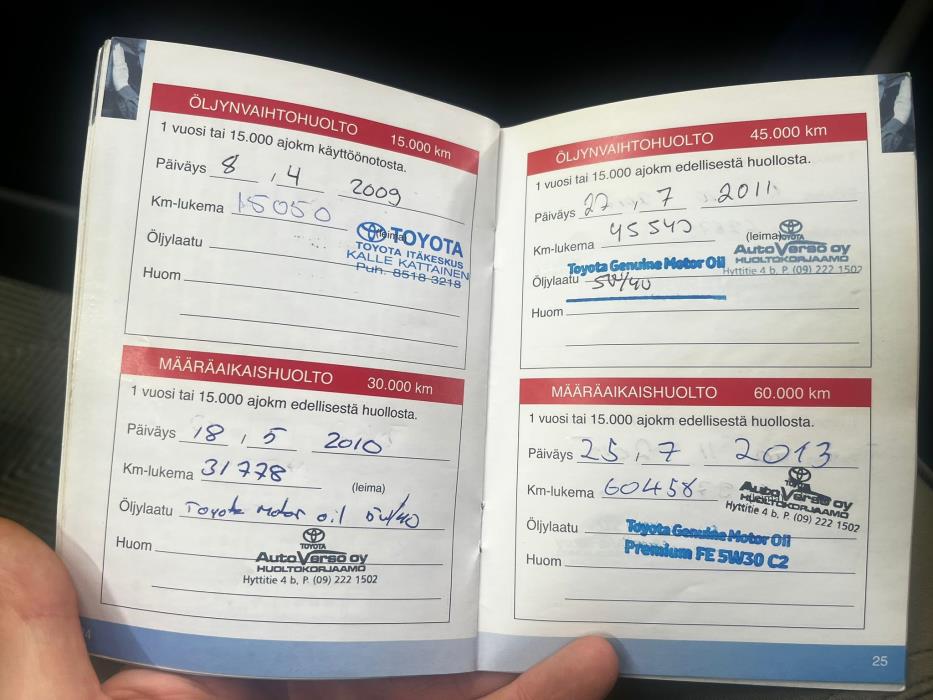 ÖLJYNVAIHTOHUOLTO 15.000 km
1 vuosi tai 15.000 ajokm käyttöönotosta.
Päiväys 8 , 4 2009
Km-lukema 15050
(leima)
TOYOTA
TOYOTA ITÄKESKUS
KALLE KATTAINEN
Puh. 8518 3218
Öljylaatu
Huom
MÄÄRÄAIKAISHUOLTO 30.000 km
1 vuosi tai 15.000 ajokm edellisestä huollosta.
Päiväys 18 , 5 2010
Km-lukema 31778
(leima)
Öljylaatu Toyota Motor oil 5W/40
Huom
TOYOTA
AutoVerso oy
HUOLTOKORJAAMO
Hyttitie 4 b, P. (09) 222 1502
ÖLJYNVAIHTOHUOLTO 45.000 km
1 vuosi tai 15.000 ajokm edellisestä huollosta.
Päiväys 27 , 7 2011
Km-lukema 45540
(leima)
TOYOTA
AutoVerso oy
HUOLTOKORJAAMO
Hyttitie 4 b, P. (09) 222 1502
Toyota Genuine Motor Oil
Öljylaatu 5W/40
Huom
MÄÄRÄAIKAISHUOLTO 60.000 km
1 vuosi tai 15.000 ajokm edellisestä huollosta.
Päiväys 25 , 7 2013
Km-lukema 60458
TOYOTA
AutoVerso oy
HUOLTOKORJAAMO
Hyttitie 4 b, P. (09) 222 1502
Öljylaatu
Toyota Genuine Motor Oil
Premium FE 5W30 C2
Huom
4
25